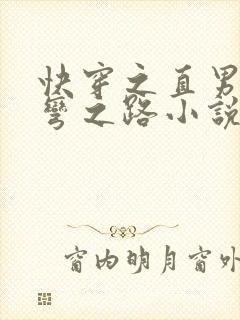 快穿之直男
彎之路小說
窗内明月窗外